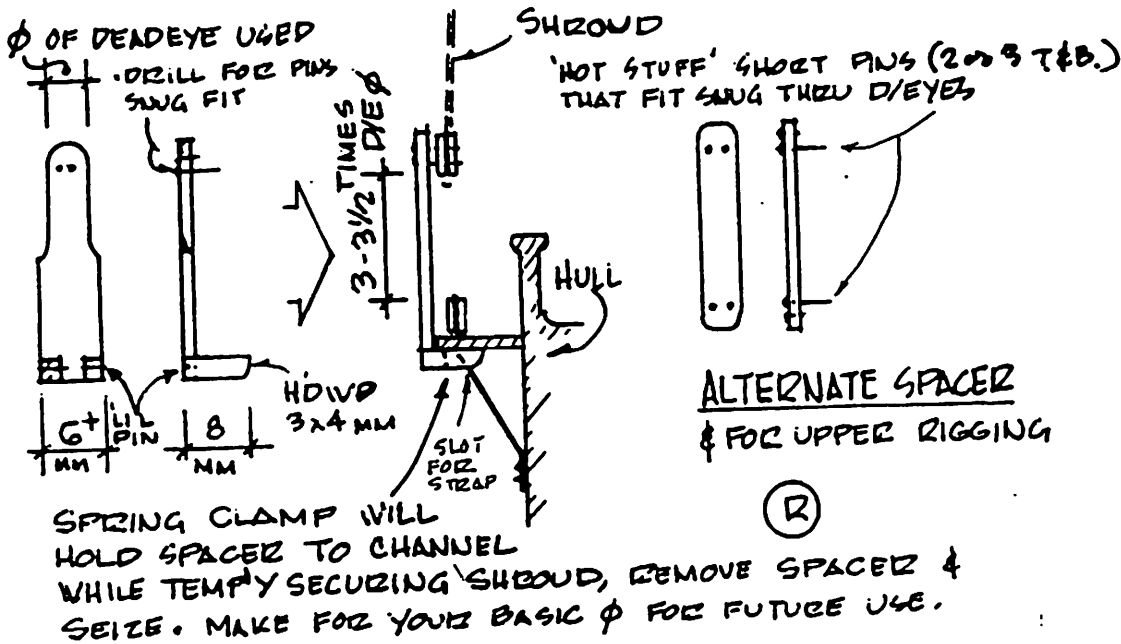 φ OF DEADEYE USED
DRILL FOR PINS
SNUG FIT
SHROUD
'HOT STUFF' SHORT PINS (2 or 3 T&B.)
THAT FIT SNUG THRU D/EYES
3-3 1/2 TIMES
D/E φ
HULL
H'DWD
3x4 MM
6+
MM
LI'L
PIN
8
MM
SLOT
FOR
STRAP
ALTERNATE SPACER
& FOR UPPER RIGGING
R
SPRING CLAMP WILL
HOLD SPACER TO CHANNEL
WHILE TEMP'Y SECURING SHROUD, REMOVE SPACER &
SEIZE. MAKE FOR YOUR BASIC φ FOR FUTURE USE.